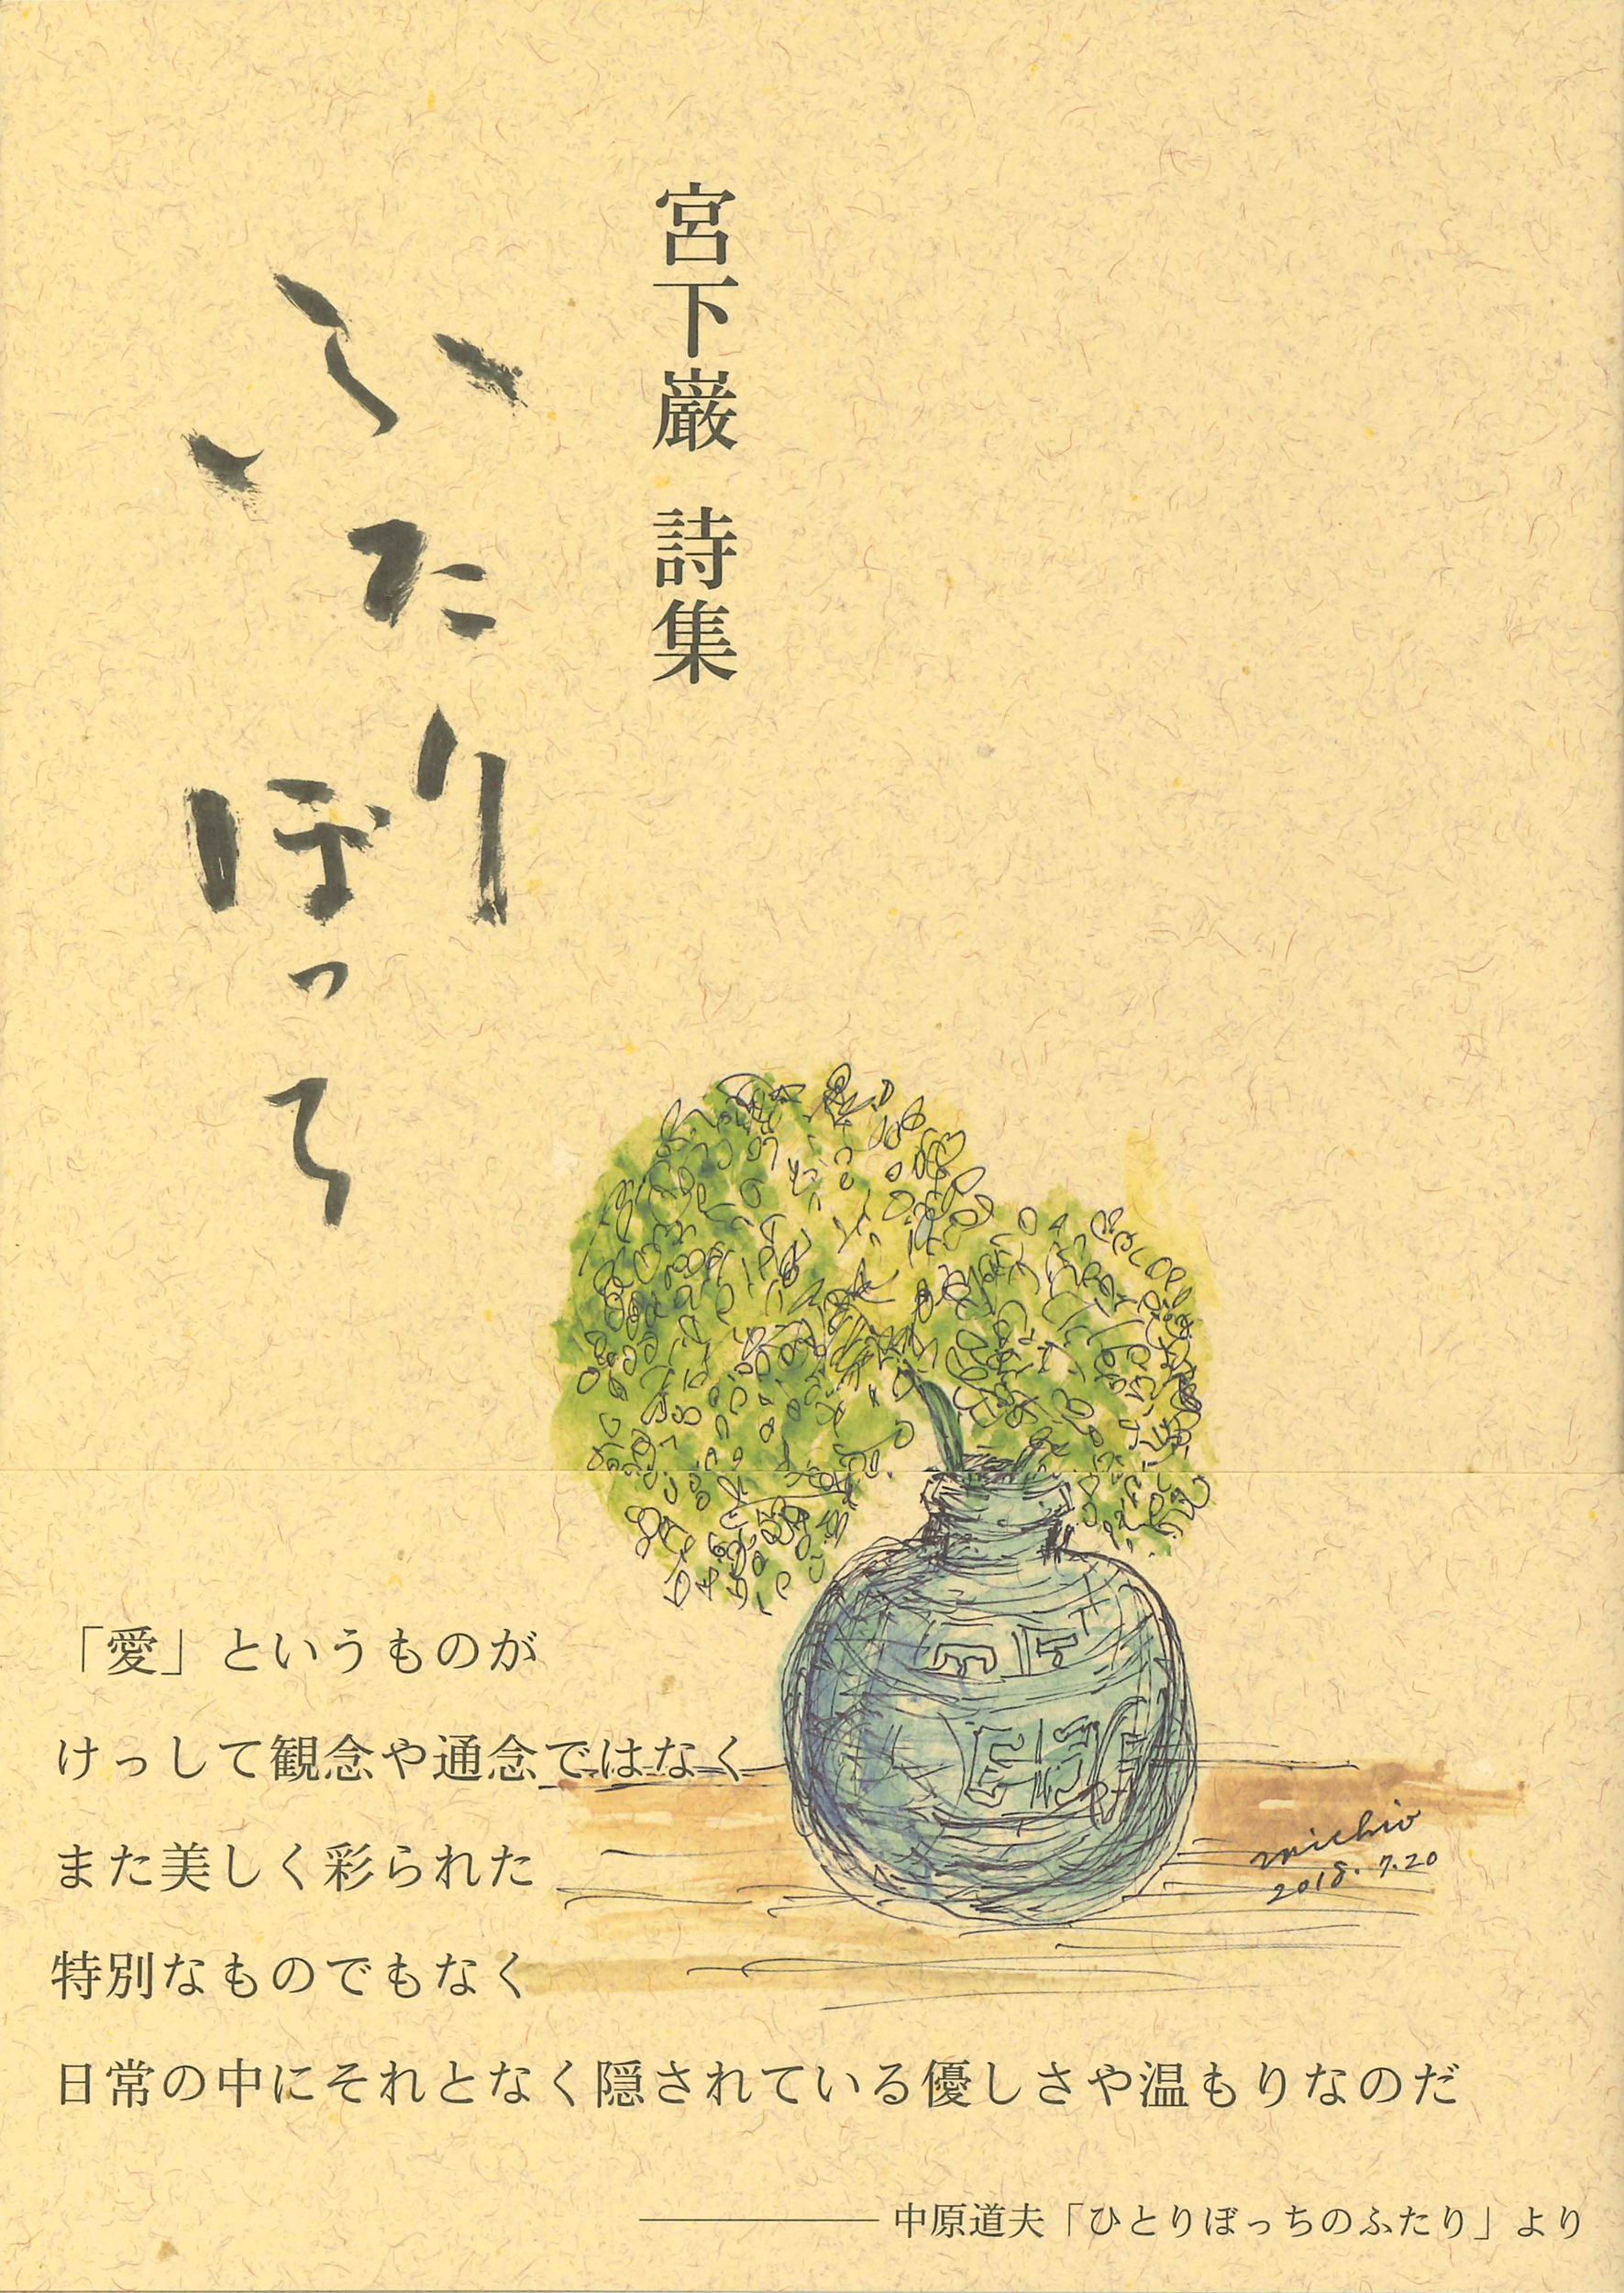 宮下巌 詩集
ふたりぼっち
michio
2018.7.20
「愛」というものが
けっして観念や通念ではなく
また美しく彩られた
特別なものでもなく
日常の中にそれとなく隠されている優しさや温もりなのだ
———中原道夫「ひとりぼっちのふたり」より